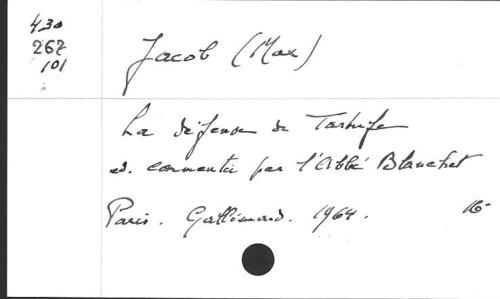 430
267
101
Jacob (Max)
La défense de Tartufe
ed. commentée par l'Abbé Blanchet
Paris. Gallimard. 1964. 16-